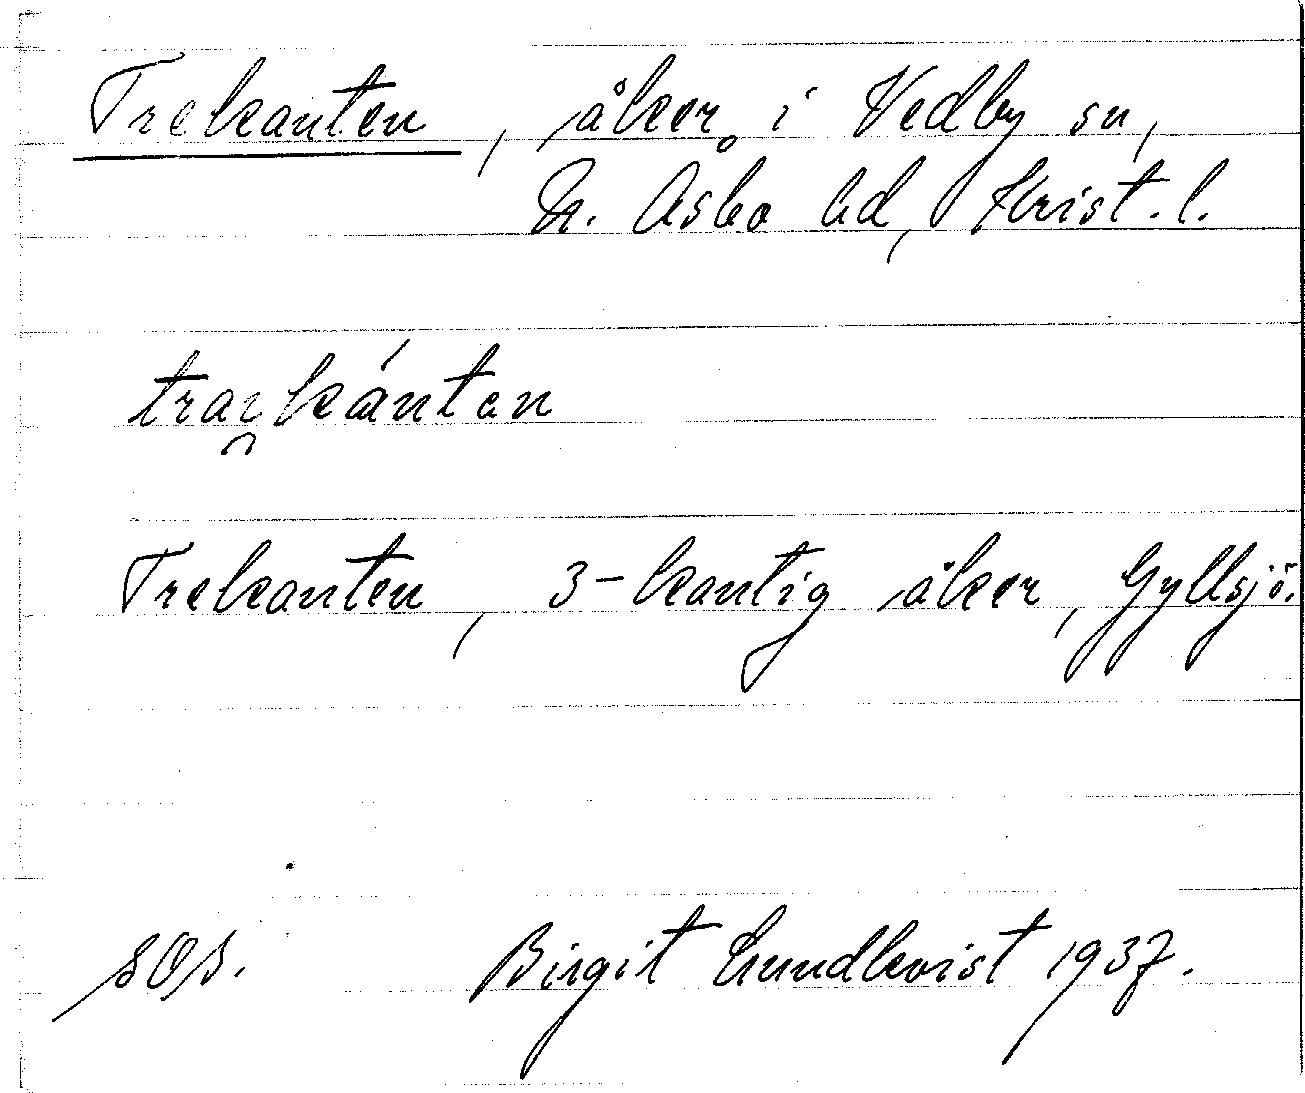 Trekanten, åker i Vedby sn,
N. Åsbo hd, Krist. l.
Trekanten, 3-kantig åker, Gyllsjö.
Birgit Lundkvist 1937.